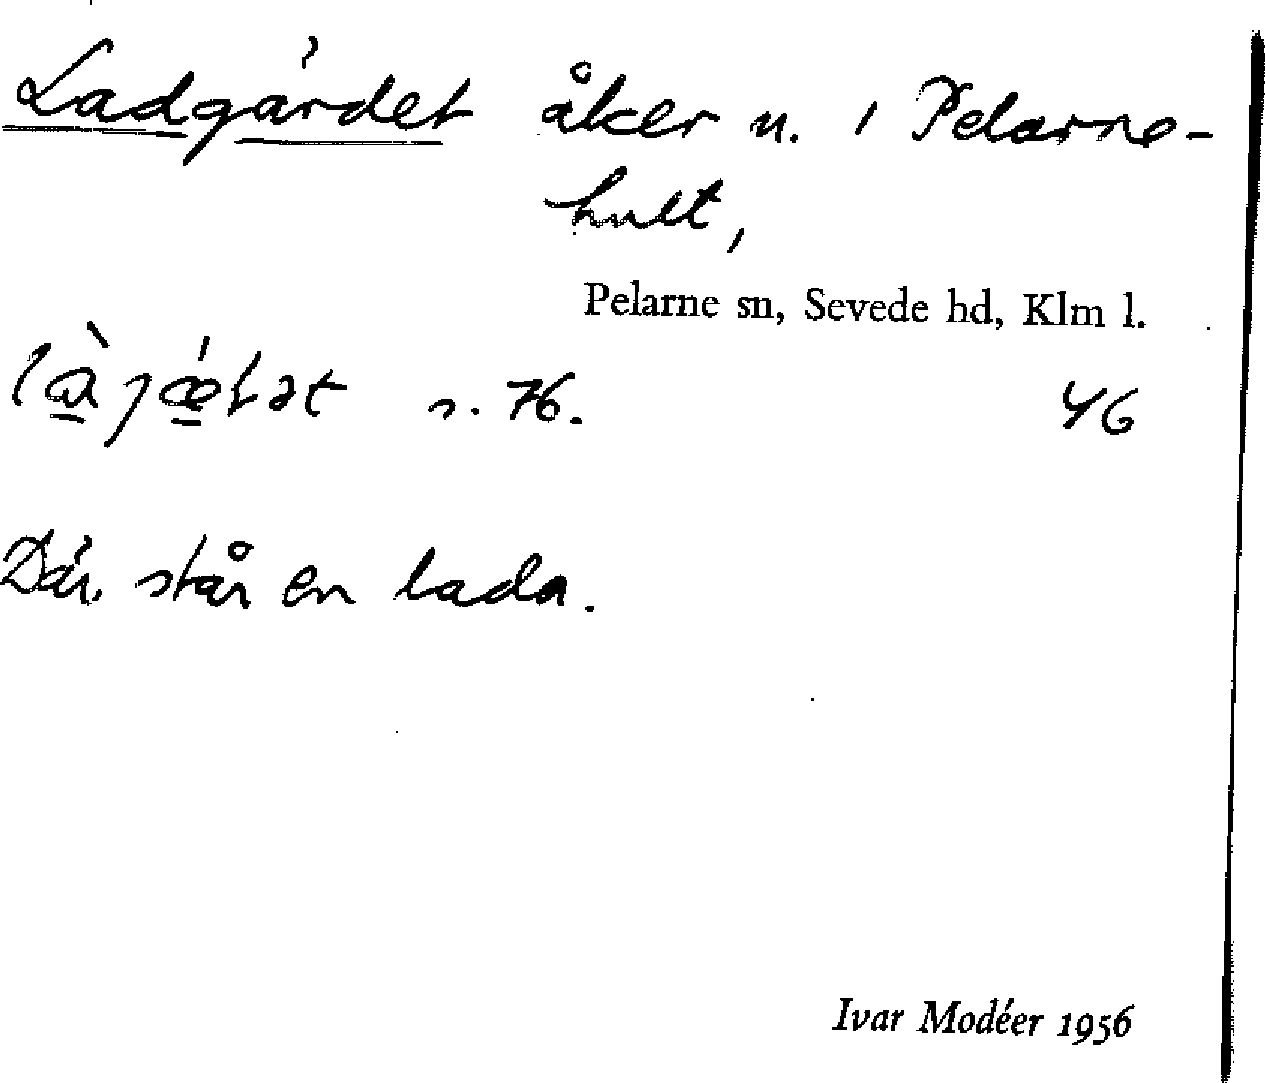 Ladgärdet åker n. i Pelarne-
hult,
Pelarne sn, Sevede hd, Klm l.
s. 76. 46
Där står en lada.
Ivar Modéer 1956